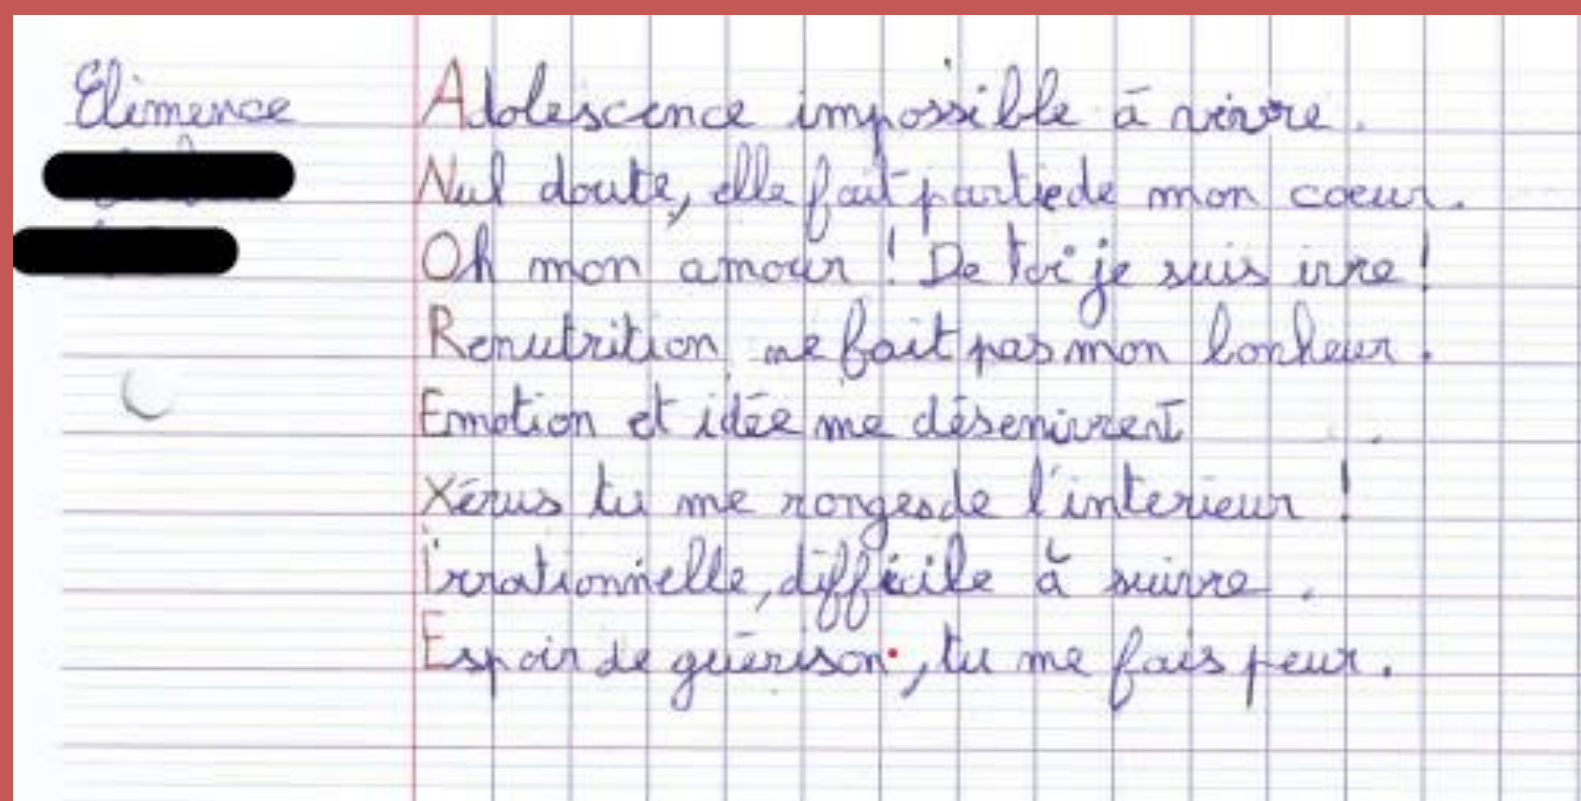 Clémence
Adolescence impossible à vivre.
Nul doute, elle fait partie de mon coeur.
Oh mon amour ! De toi je suis ivre !
Renutrition ne fait pas mon bonheur.
Emotion et idée me désenivrent
Xérus tu me ronges de l'interieur !
Irrationnelle, difficile à suivre.
Espoir de guérison, tu me fais peur.